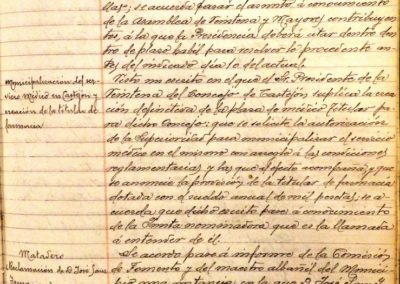 llas; se acuerda pasar el asunto a conocimiento
de la Asamblea de Veintena y Mayores contribuyen-
tes, á la que la Presidencia deberá citar dentro
de plazo habil para resolver lo procedente an-
tes del indicado dia 10 del actual.
Municipalización del ser-
vicio Médico en Castejón y
creación de la titular de
farmacia
Visto un escrito en el que el Sr. Presidente de la
Veintena del Concejo de Castejón, suplica la crea-
ción definitiva de la plaza de médico titular pa-
ra dicho Concejo; que se solicite la autorización
de la Superioridad para municipalizar el servicio
médico en el mismo con arreglo á las condiciones
reglamentarias y las que al efecto acompaña, y que
se anuncie la provisión de la titular de farmacia
dotada con el sueldo anual de mil pesetas; se a-
cuerda que dicho escrito pase a conocimiento
de la Junta nominadora que es la llamada
á entender de él.
Matadero
Reclamación de D. José
Se acordó pase á informe de la Comisión
de Fomento y del maestro albañil del Munici-
pio una instancia en la que D. José